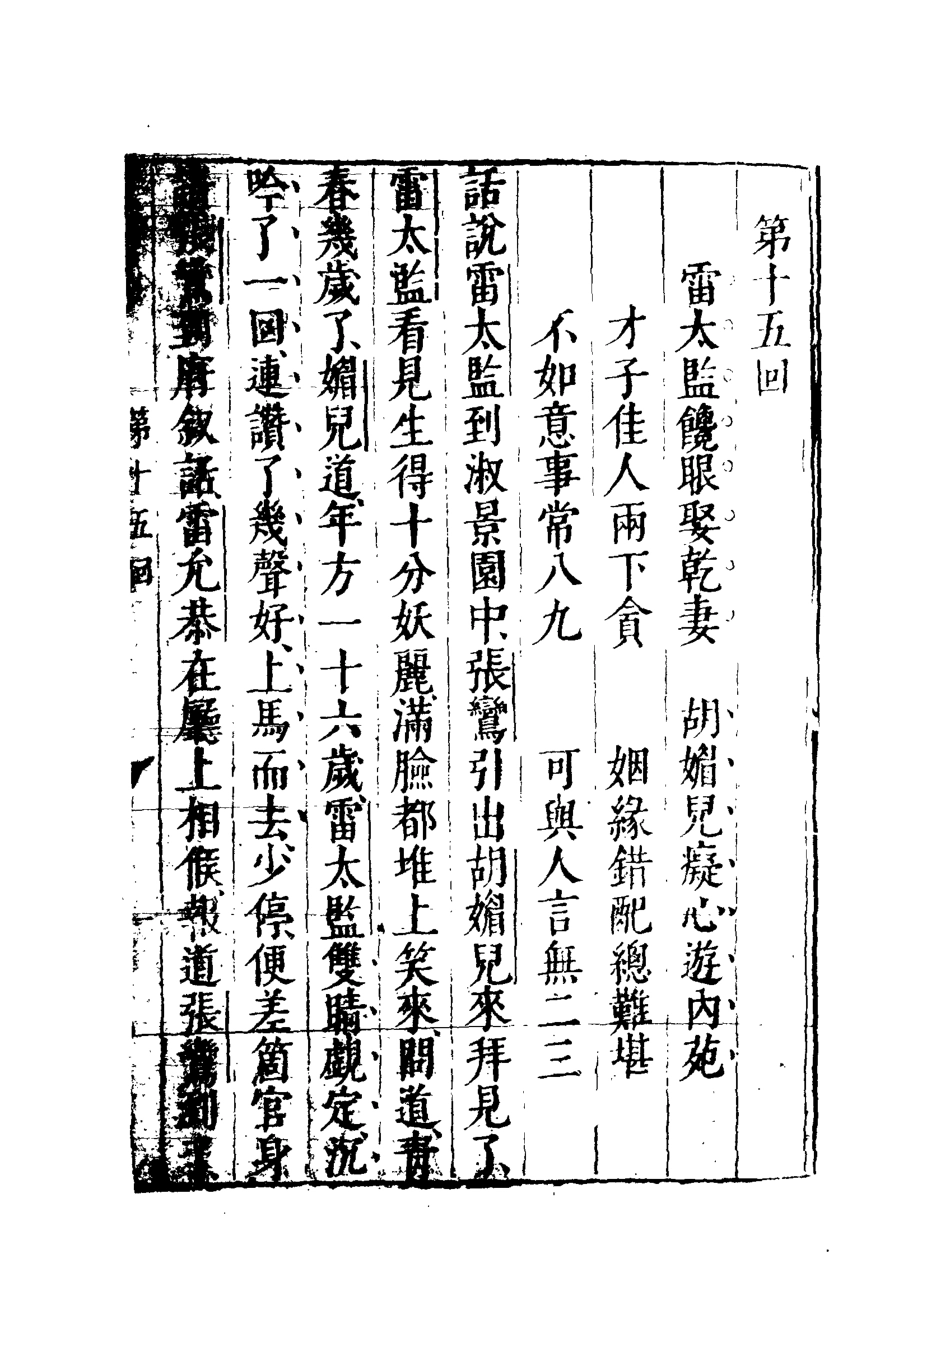 第十五回
雷太監饞眼娶乾妻　胡媚兒癡心遊內苑
才子佳人兩下貪　姻緣錯配總難堪
不如意事常八九　可與人言無二三
話說雷太監到淑景園中、張鸞引出胡媚兒來拜見了、
雷太監看見生得十分妖麗、滿臉都堆上笑來、問道、青
春幾歲了、媚兒道、年方一十六歲、雷太監雙睛覷定、沉
吟了一回、連讚了幾聲好、上馬而去、少停、便差箇官身
請張鸞到府敘話、雷允恭在廳上相候、報道張鸞到
第十五回